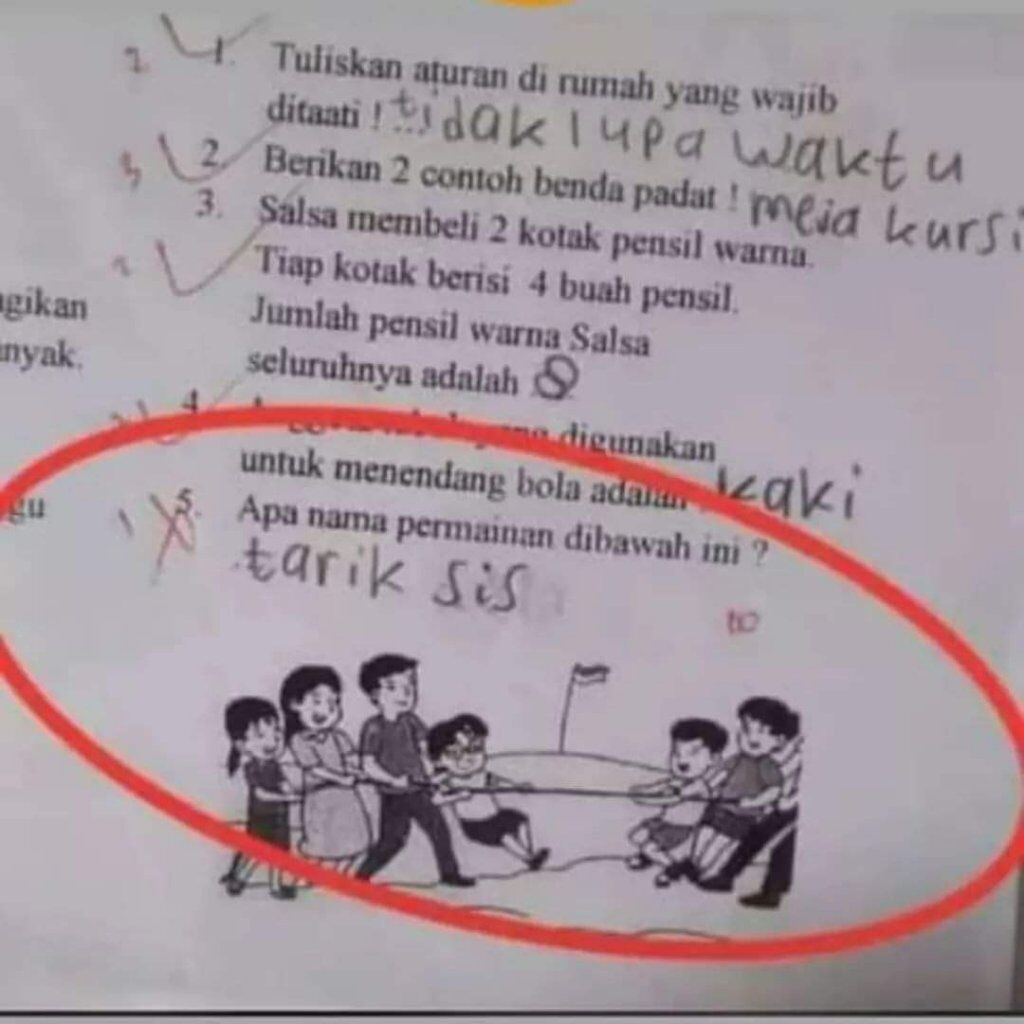 2 1. Tuliskan aturan di rumah yang wajib
ditaati !... tidak lupa waktu
3 2. Berikan 2 contoh benda padat ! meja kursi
3. Salsa membeli 2 kotak pensil warna.
Tiap kotak berisi 4 buah pensil.
Jumlah pensil warna Salsa
seluruhnya adalah 8
4. digunakan
untuk menendang bola adalah kaki
1 5. Apa nama permainan dibawah ini ?
tarik sis
gikan
nyak.
gu